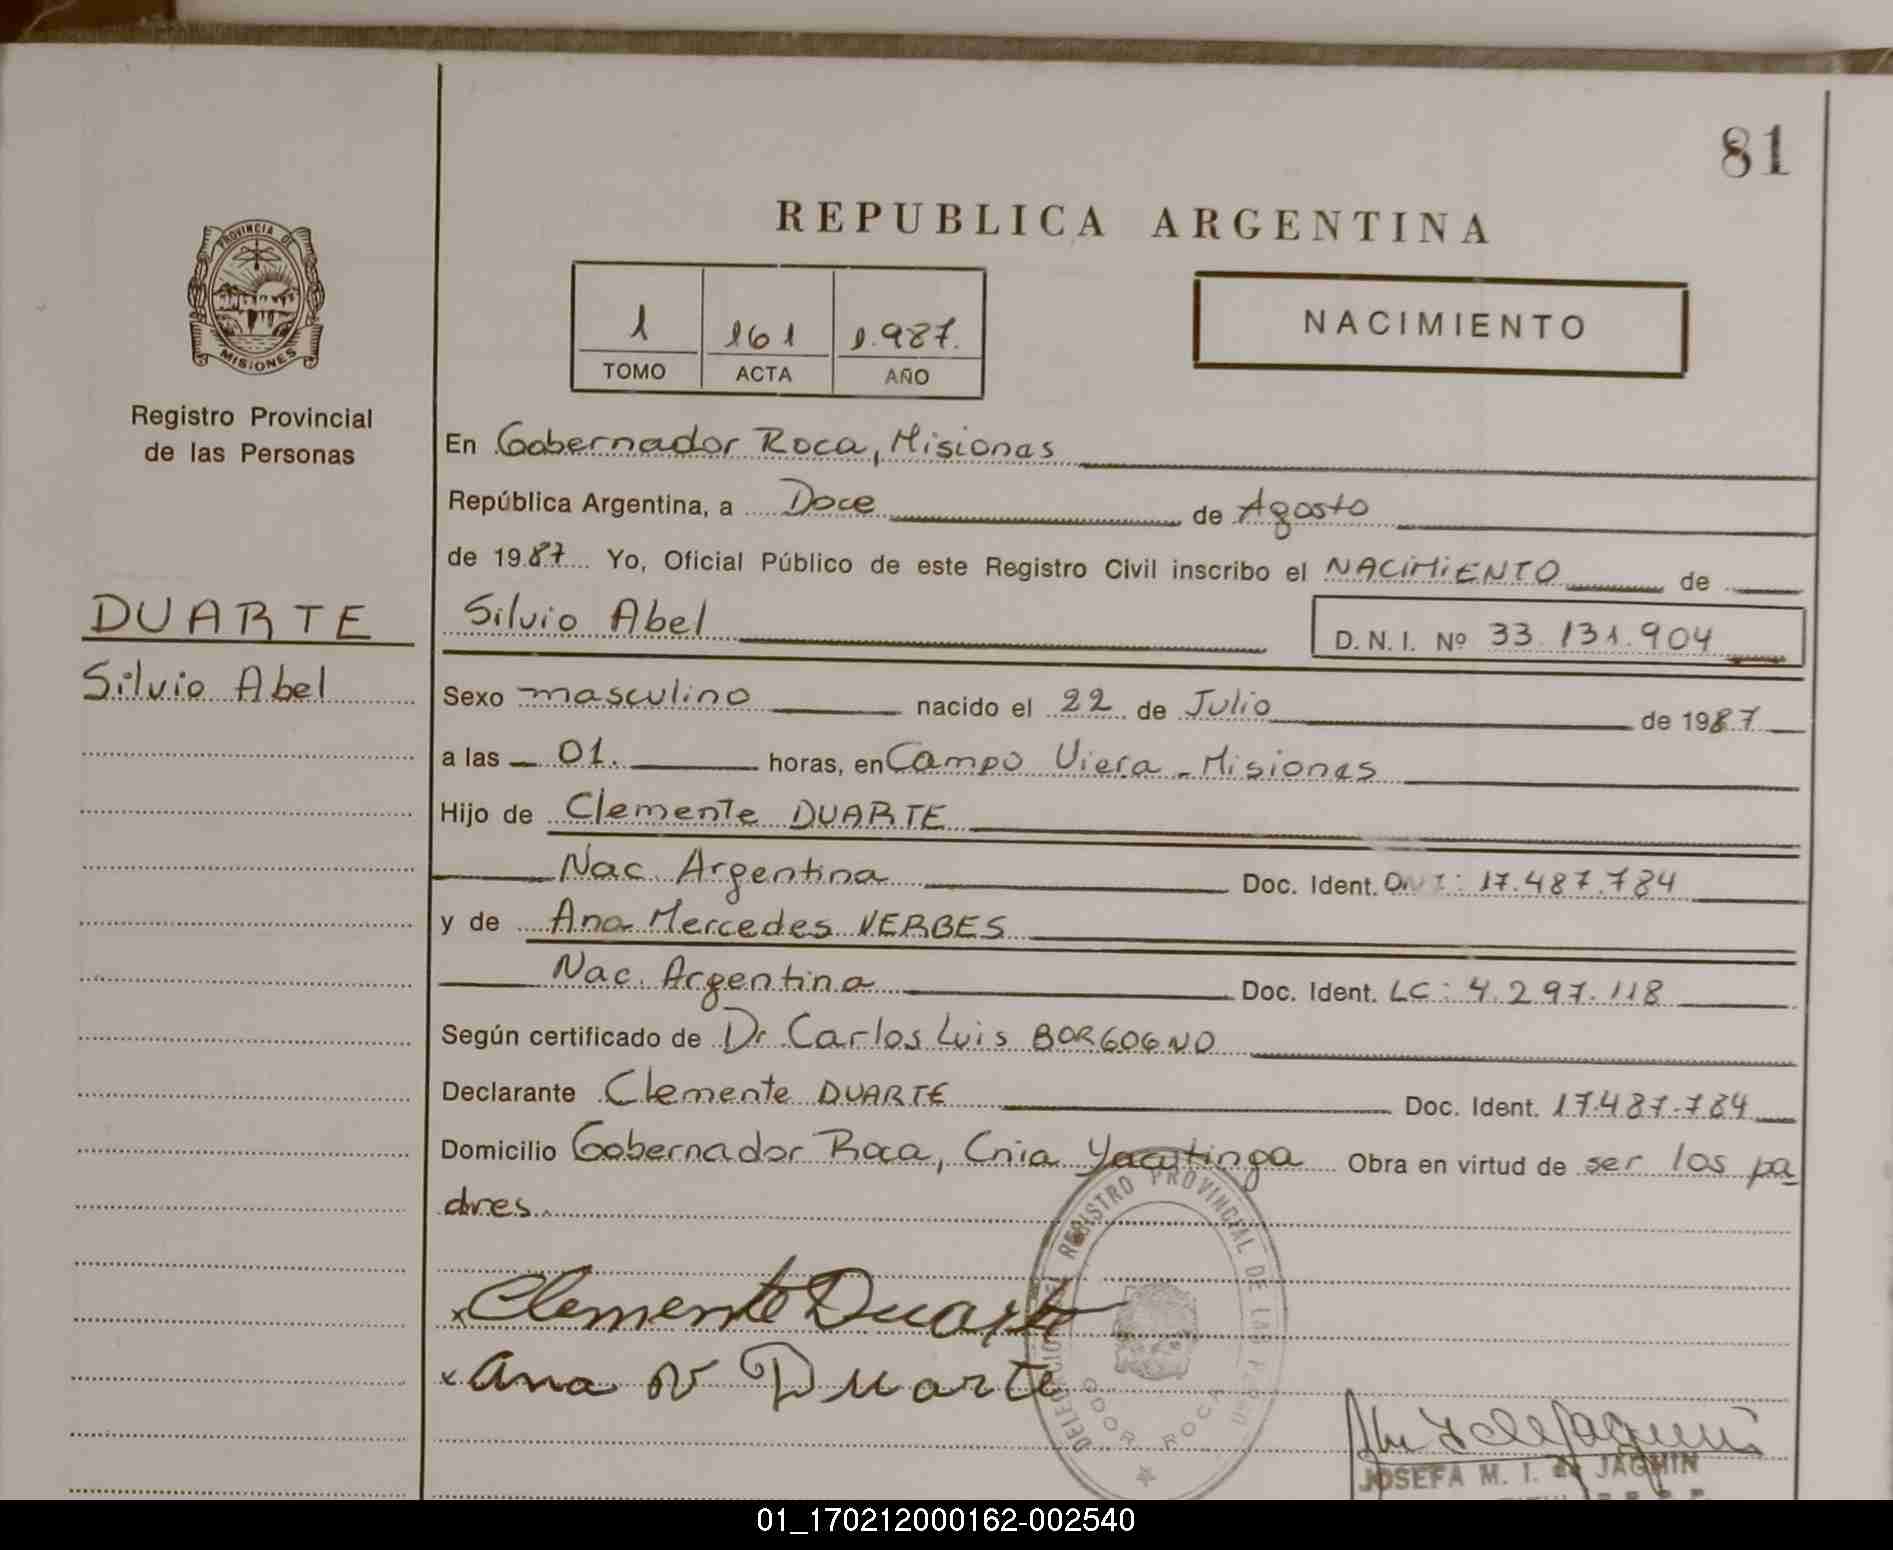 81
REPUBLICA ARGENTINA
PROVINCIA DE
MISIONES
1 161 1.987.
TOMO ACTA AÑO
NACIMIENTO
Registro Provincial
de las Personas
En Gobernador Roca, Misiones
República Argentina, a Doce de Agosto
de 1987 Yo, Oficial Público de este Registro Civil inscribo el NACIMIENTO de
DUARTE
Silvio Abel D. N. I. Nº 33.131.904
Silvio Abel
Sexo masculino nacido el 22 de Julio de 1987
a las 01. horas, en Campo Viera - Misiones
Hijo de Clemente DUARTE
Nac. Argentina Doc. Ident. DNI: 17.487.784
y de Ana Mercedes VERBES
Nac. Argentina Doc. Ident. LC: 4.297.118
Según certificado de Dr. Carlos Luis BORGOGNO
Declarante Clemente DUARTE Doc. Ident. 17.487.784
Domicilio Gobernador Roca, Cnia Yacutinga Obra en virtud de ser los pa
dres.
REGISTRO PROVINCIAL DE LAS
ROCA
x Clemente Duarte
x Ana V Duarte
JOSEFA M. I. de JAGMIN
01_170212000162-002540